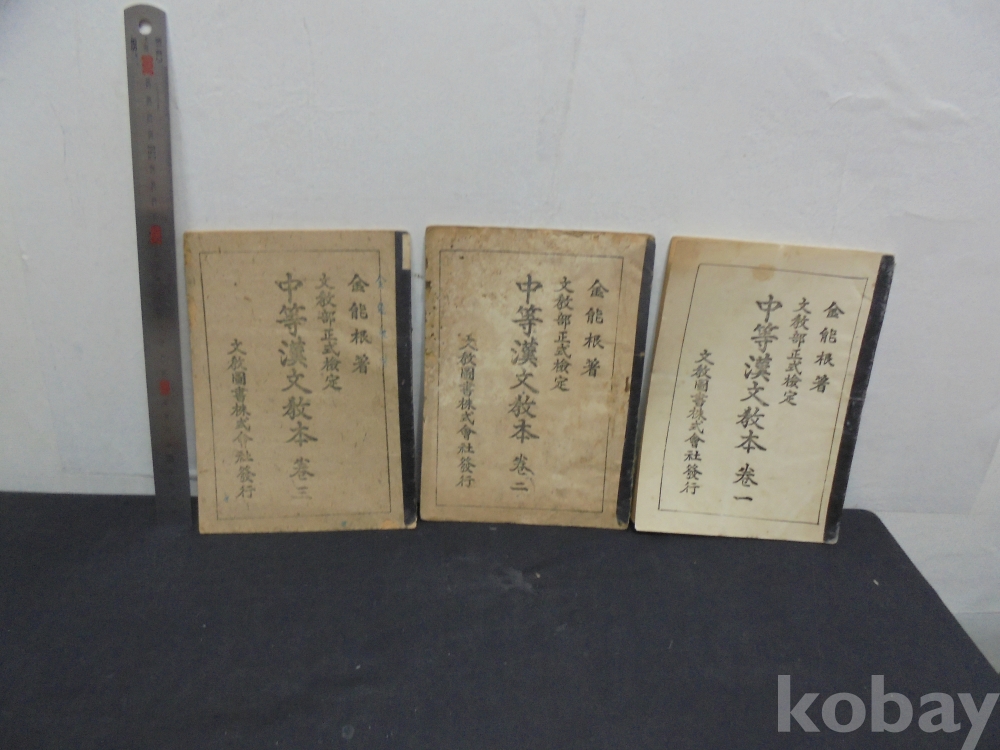 金能根著
文敎部正式檢定
中等漢文敎本 卷三
文敎圖書株式會社發行
金能根著
文敎部正式檢定
中等漢文敎本 卷二
文敎圖書株式會社發行
金能根著
文敎部正式檢定
中等漢文敎本 卷一
文敎圖書株式會社發行
kobay